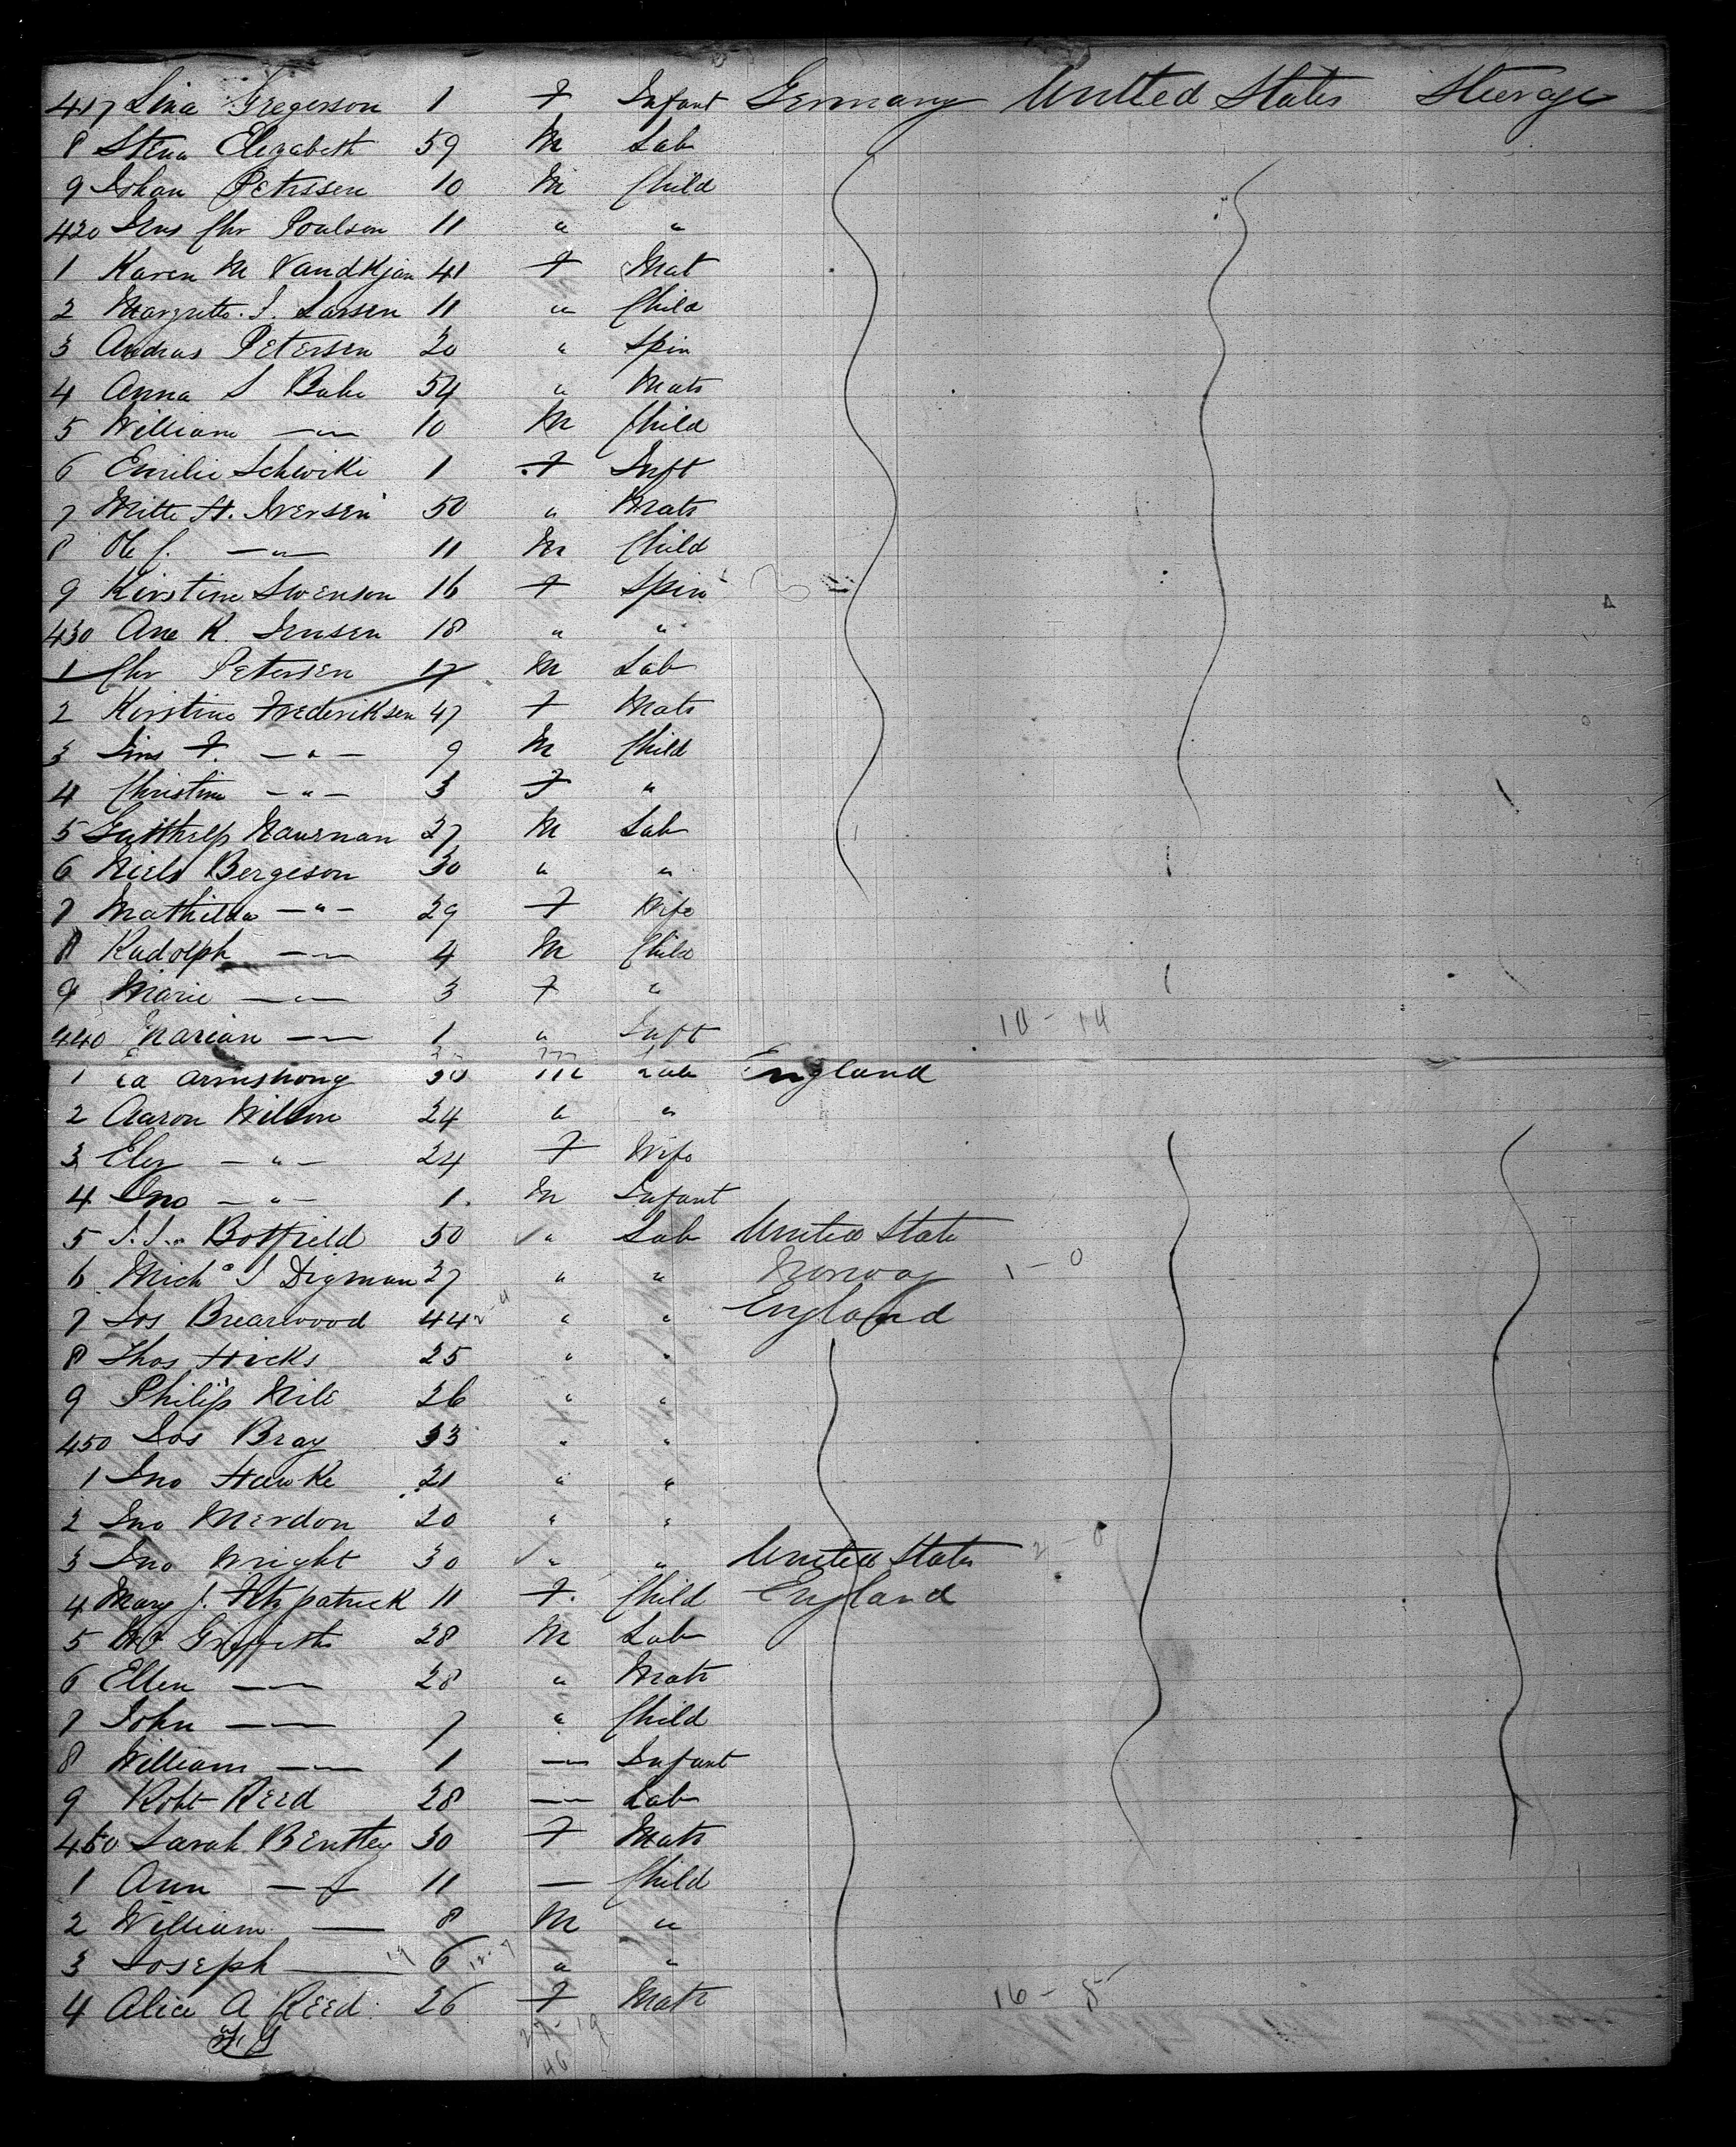 417 Lina Gregerson 1 F Infant Germany United States Steerage
8 Stena Elizabeth 59 M Lab
9 Johan Peterssen 10 M Child
420 Jens Chr Poulson 11 " "
1 Karen M Vandkjan 41 F Mat
2 Margretta J. Larsen 11 " Child
3 Andras Petersen 20 " Spin
4 Anna S Bake 54 " Mats
5 William —"— 10 M Child
6 Emilie Schwike 1 F Inft
7 Mitte H. Iversen 50 " Mats
8 Ole C. —"— 11 M Child
9 Kirstine Swenson 16 F Spin
430 Ane K. Jensen 18 " "
1 Chr Petersen 17 M Lab
2 Kirstine Frederiksen 47 F Mats
3 Jens F. —"— 9 M Child
4 Christine —"— 3 F "
5 Nawman 27 M Lab
6 Niels Bergeson 30 " "
7 Mathilda —"— 29 F Wife
8 Rudolph —"— 4 M Child
9 Marie —"— 3 F "
440 Marian —"— 1 " Inft
10 - 14
1 Ed Armstrong 30 M Lab England
2 Aaron Wilson 24 " "
3 Eliz —"— 24 F Wife
4 Jno —"— 1 M Infant
5 J. J. Botfield 50 " Lab United State
6 Mich J Digman 27 " " Norway 1 - 0
7 Jos Brearwood 44 " " England
8 Thos Hicks 25 " "
9 Philip Nile 26 " "
450 Jos Bray 33 " "
1 Jno Hawke 21 " "
2 Jno Merdon 20 " "
3 Jno Wright 30 " " United States 2 - 0
4 Mary J. Fitzpatrick 11 F. Child England
5 Wm Griffiths 28 M Lab
6 Ellen —"— 28 " Mats
7 John —"— 7 " Child
8 William —"— 1 —"— Infant
9 Robt Reed 28 —"— Lab
460 Sarah Bentley 30 F Mats
1 Ann —"— 11 — Child
2 William — 8 M "
3 Joseph — 6 " "
4 Alice A Reed 26 F Mats
16 - 8
27 - 19
46